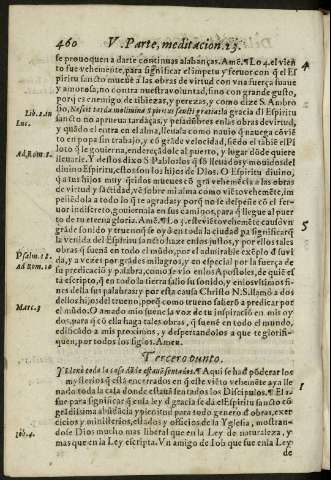 460 V. Parte, meditacion 25.
se prouoquen a darte continuas alabanças. Amē. ¶ Lo 4. el vien
to fue vehemēte, para significar el impetu y feruor con q̄ el Es
piritu sancto mueue a las obras de virtud con vna fuerça suaue
y amorosa, no contra nuestra voluntad, sino con grande gusto,
porq̄ es enemigo de tibiezas, y perezas, y como dize S. Ambro
sio, Nescit tarda molimina Spiritus sancti gratia: la gracia dl Espiritu
sancto no aprueua tardāças, y pesadūbres en las obras de virtud,
y quādo el entra en el alma, lleuala como nauio q̄ nauega cō viē
to en popa sin trabajo, y cō grāde velocidad, siēdo el tābiē el Pi
loto q̄ le gouierna, endereçādole al puerto, y lugar dōde quiere
lleuarle. Y destos dixo S. Pablo: los q̄ sō lleuados y mouidos del
diuino Espiritu, estos son los hijos de Dios. O Espiritu diuino,
q̄ a tus hijos muy q̄ridos mueues cō grā vehemēcia a las obras
de virtud y sātidad, vē sobre mi alma como viēto vehemēte, im
peliēdola a todo lo q̄ te agradas y porq̄ no se despeñe cō el fer
uor indiscreto, gouiernala en sus caminos, para q̄ llegue al puer
to de tu eterna gloria. Amē. ¶ Lo 5. este viēto vehemēte causò vn
grāde sonido y trueno q̄ se oyò en toda la ciudad pa significar q̄
la venida del Espiritu sancto haze en los justos, y por ellos tales
obras q̄ suenā en todo el mūdo, por el admirable exēplo d̄ su vi
da, y a vezes por grādes milagros, y en especial por la fuerça de
su predicaciō y palabra, como se vio en los Apostoles, de quiē es
ta escripto, q̄ en toda la tierra salio su sonido, y en los vltimos fi-
nes della sus palabras: y por esta causa Christo N. S. llamò a dos
dellos hijos del trueno, porq̄ como trueno saliērō a predicar por
el mūdo. O amado mio suene la voz de tu inspiraciō en mis oy
dos, para q̄ cō ella haga tales obras, q̄ suene en todo el mundo,
edificādo a mis proximos, y despertandolos a que te glorifi-
quen, por todos los siglos. Amen.
Tercero punto.
Y llenò toda la casa dōde estauā sentados. ¶ Aqui se hā d̄ pōderar los
mysterios q̄ està encerrados en q̄ este viēto vehemēte aya lle
nado toda la casa donde estauā sentados los Discipulos. ¶ El 1.
fue para significar q̄ en la ley d̄ gracia se dā el Espiritu sancto cō
grādissima abūdācia y plenitud para todo genero d̄ obras, exer
cicios y ministerios, estados y officios de la Yglesia, mostran-
dose Dios mucho mas liberal que en la Ley de naturaleza, y
mas que en la Ley escripta. Vn amigo de Iob que fue en la Ley
de
Lib. 2. in
Luc.
Ad Rom. 8.
Psalm. 18.
Ad Rom. 10
Marc. 3
Iob. 4.
4
5
1